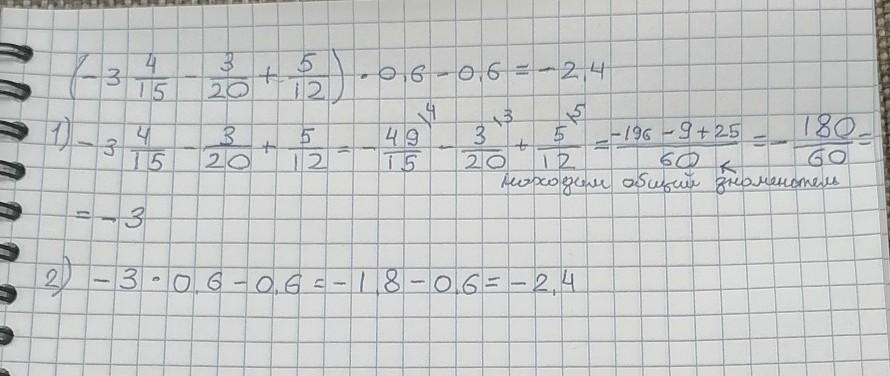 (-3 4/15 - 3/20 + 5/12) · 0,6 - 0,6 = -2,4
1) -3 4/15 - 3/20 + 5/12 = - 49/15 \4 - 3/20 \3 + 5/12 \5 = -196 - 9 + 25/60 = - 180/60 =
находим общий знаменатель
= -3
2) -3 · 0,6 - 0,6 = -1,8 - 0,6 = -2,4